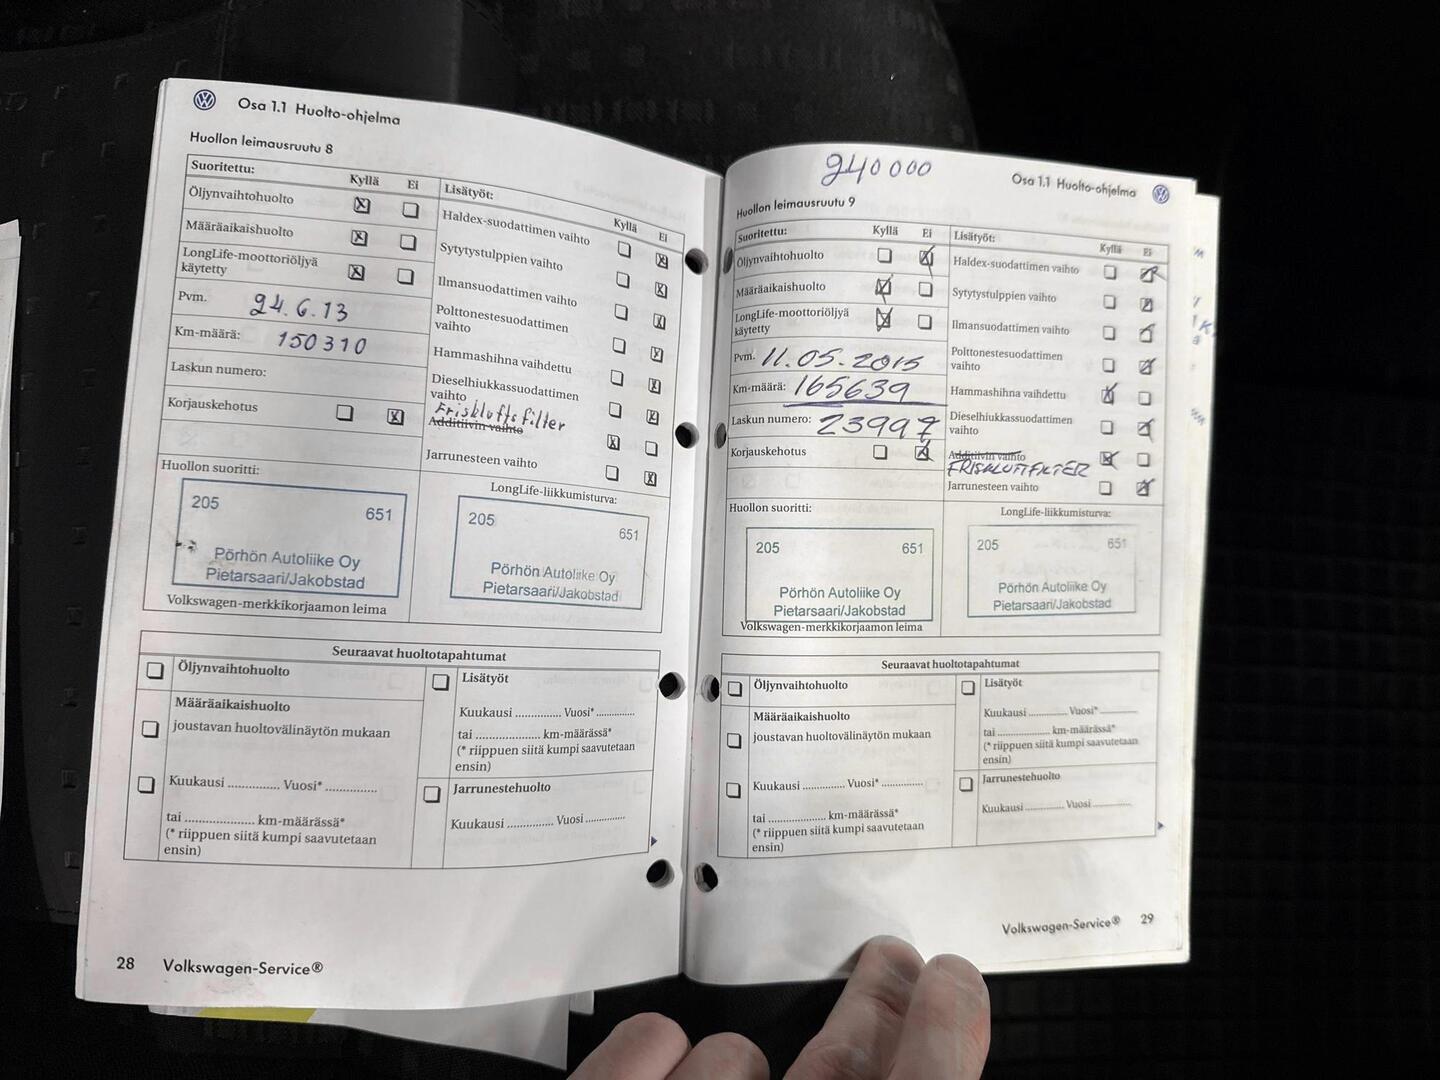 Osa 1.1 Huolto-ohjelma
Huollon leimausruutu 8
Suoritettu:
Kyllä Ei
Öljynvaihtohuolto
Määräaikaishuolto
LongLife-moottoriöljyä
käytetty
Pvm. 24.6.13
Km-määrä: 150310
Laskun numero:
Korjauskehotus
Lisätyöt:
Kyllä Ei
Haldex-suodattimen vaihto
Sytytystulppien vaihto
Ilmansuodattimen vaihto
Polttonestesuodattimen
vaihto
Hammashihna vaihdettu
Dieselhiukkassuodattimen
vaihto
Friskluftsfilter
Additiivin vaihto
Jarrunesteen vaihto
Huollon suoritti:
205 651
Pörhön Autoliike Oy
Pietarsaari/Jakobstad
Volkswagen-merkkikorjaamon leima
LongLife-liikkumisturva:
205 651
Pörhön Autoliike Oy
Pietarsaari/Jakobstad
Seuraavat huoltotapahtumat
Öljynvaihtohuolto
Määräaikaishuolto
joustavan huoltovälinäytön mukaan
Kuukausi .............. Vuosi* ..............
tai ................... km-määrässä*
(* riippuen siitä kumpi saavutetaan
ensin)
Lisätyöt
Kuukausi ............. Vuosi* ...........
tai .................... km-määrässä*
(* riippuen siitä kumpi saavutetaan
ensin)
Jarrunestehuolto
Kuukausi ............. Vuosi ...........
28 Volkswagen-Service®
240000
Osa 1.1 Huolto-ohjelma
Huollon leimausruutu 9
Suoritettu:
Kyllä Ei
Öljynvaihtohuolto
Määräaikaishuolto
LongLife-moottoriöljyä
käytetty
Pvm. 11.05.2015
Km-määrä: 165639
Laskun numero: 23997
Korjauskehotus
Lisätyöt:
Kyllä Ei
Haldex-suodattimen vaihto
Sytytystulppien vaihto
Ilmansuodattimen vaihto
Polttonestesuodattimen
vaihto
Hammashihna vaihdettu
Dieselhiukkassuodattimen
vaihto
Additiivin vaihto
FRISKLUFTFILTER
Jarrunesteen vaihto
Huollon suoritti:
205 651
Pörhön Autoliike Oy
Pietarsaari/Jakobstad
Volkswagen-merkkikorjaamon leima
LongLife-liikkumisturva:
205 651
Pörhön Autoliike Oy
Pietarsaari/Jakobstad
Seuraavat huoltotapahtumat
Öljynvaihtohuolto
Määräaikaishuolto
joustavan huoltovälinäytön mukaan
Kuukausi ............. Vuosi* .............
tai .................... km-määrässä*
(* riippuen siitä kumpi saavutetaan
ensin)
Lisätyöt
Kuukausi ............. Vuosi* ...........
tai .................... km-määrässä*
(* riippuen siitä kumpi saavutetaan
ensin)
Jarrunestehuolto
Kuukausi ............. Vuosi ...........
Volkswagen-Service® 29